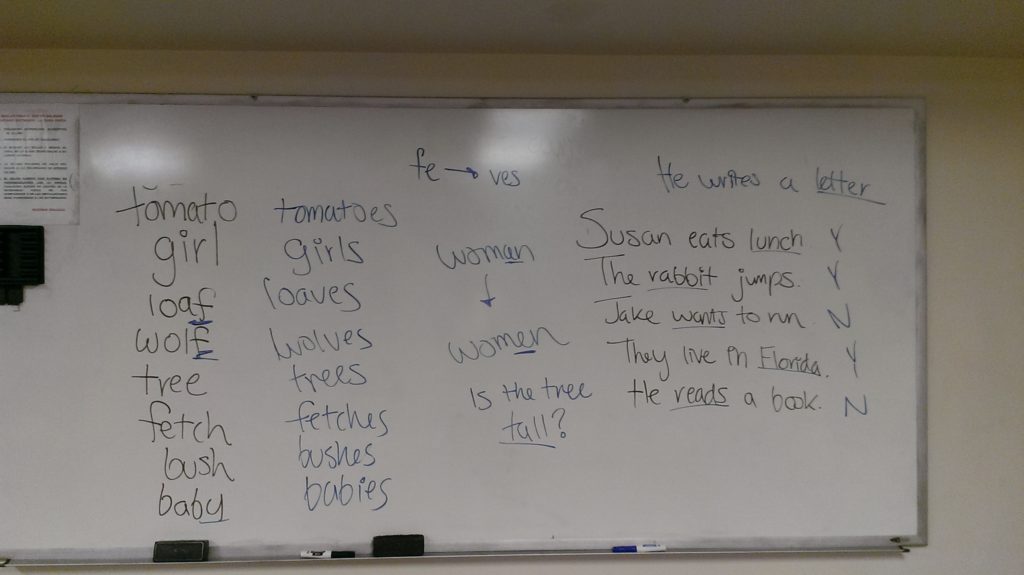 fe → ves
He writes a letter
tomato tomatoes
girl girls
loaf loaves
wolf wolves
tree trees
fetch fetches
bush bushes
baby babies
woman
↓
women
Is the tree
tall?
Susan eats lunch Y
The rabbit jumps. Y
Jake wants to run. N
They live in Florida. Y
He reads a book. N